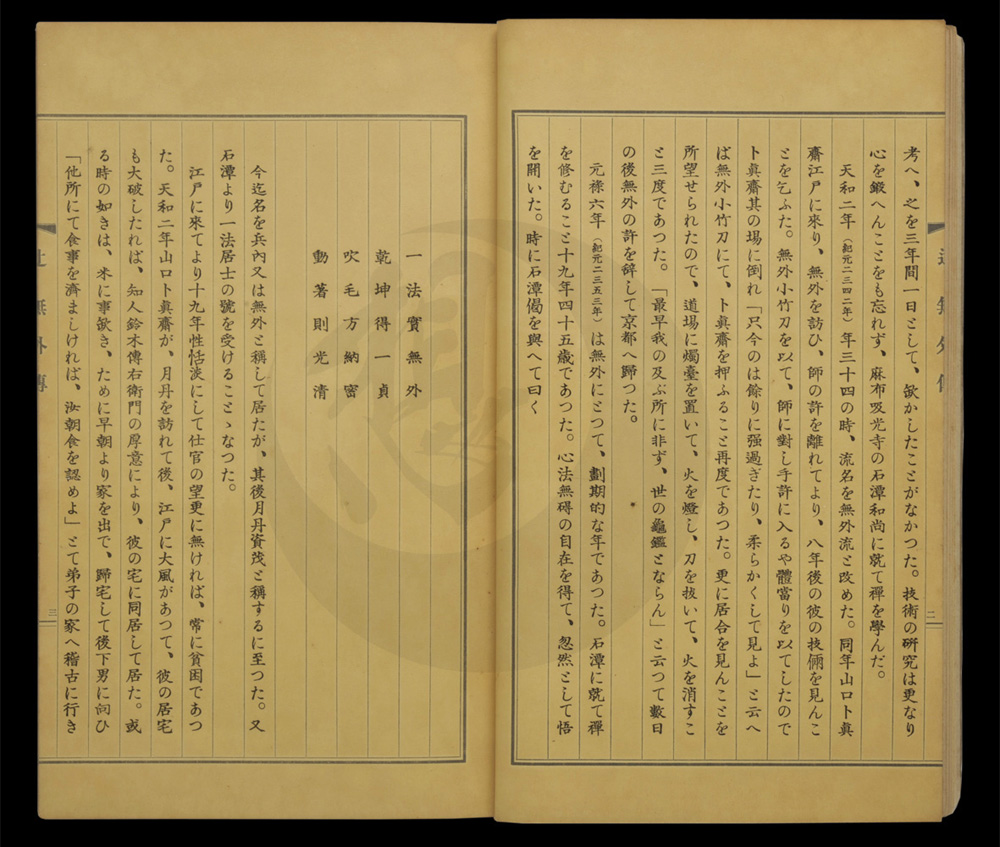 考へ、之を三年間一日として、欹かしたことがなかつた。技術の硏究は更なり
心を鍛へんことをも忘れず、麻布吸光寺の石潭和尚に就て禪を學んだ。
天和二年（紀元二三四二年）年三十四の時、流名を無外流と改めた。同年山口卜眞
齋江戸に來り、無外を訪ひ、師の許を離れてより、八年後の彼の技倆を見んこ
とを乞ふた。無外小竹刀を以て、師に對し手許に入るや體當りを以てしたので
卜眞齋其の場に倒れ「只今のは餘りに强過ぎたり、柔らかくして見よ」と云へ
ば無外小竹刀にて、卜眞齋を押ふること再度であつた。更に居合を見んことを
所望せられたので、道場に燭臺を置いて、火を燈し、刀を拔いて、火を消すこ
と三度であつた。「最早我の及ぶ所に非ず、世の龜鑑とならん」と云つて數日
の後無外の許を辭して京都へ歸つた。
元祿六年（紀元二三五三年）は無外にとつて、劃期的な年であつた。石潭に就て禪
を修むること十九年四十五歲であつた。心法無碍の自在を得て、忽然として悟
を開いた。時に石潭偈を與へて曰く
二
一法實無外
乾坤得一貞
吹毛方納密
動著則光清
今迄名を兵內又は無外と稱して居たが、其後月丹資茂と稱するに至つた。又
石潭より一法居士の號を受けることゝなつた。
江戸に來てより十九年性恬淡にして仕官の望更に無ければ、常に貧困であつ
た。天和二年山口卜眞齋が、月丹を訪れて後、江戸に大風があつて、彼の居宅
も大破したれば、知人鈴木傳右衛門の厚意により、彼の宅に同居して居た。或
る時の如きは、米に事欹き、ために早朝より家を出で、歸宅して後下男に向ひ
「他所にて食事を濟ましければ、汝朝食を認めよ」とて弟子の家へ稽古に行き
無外傳
三